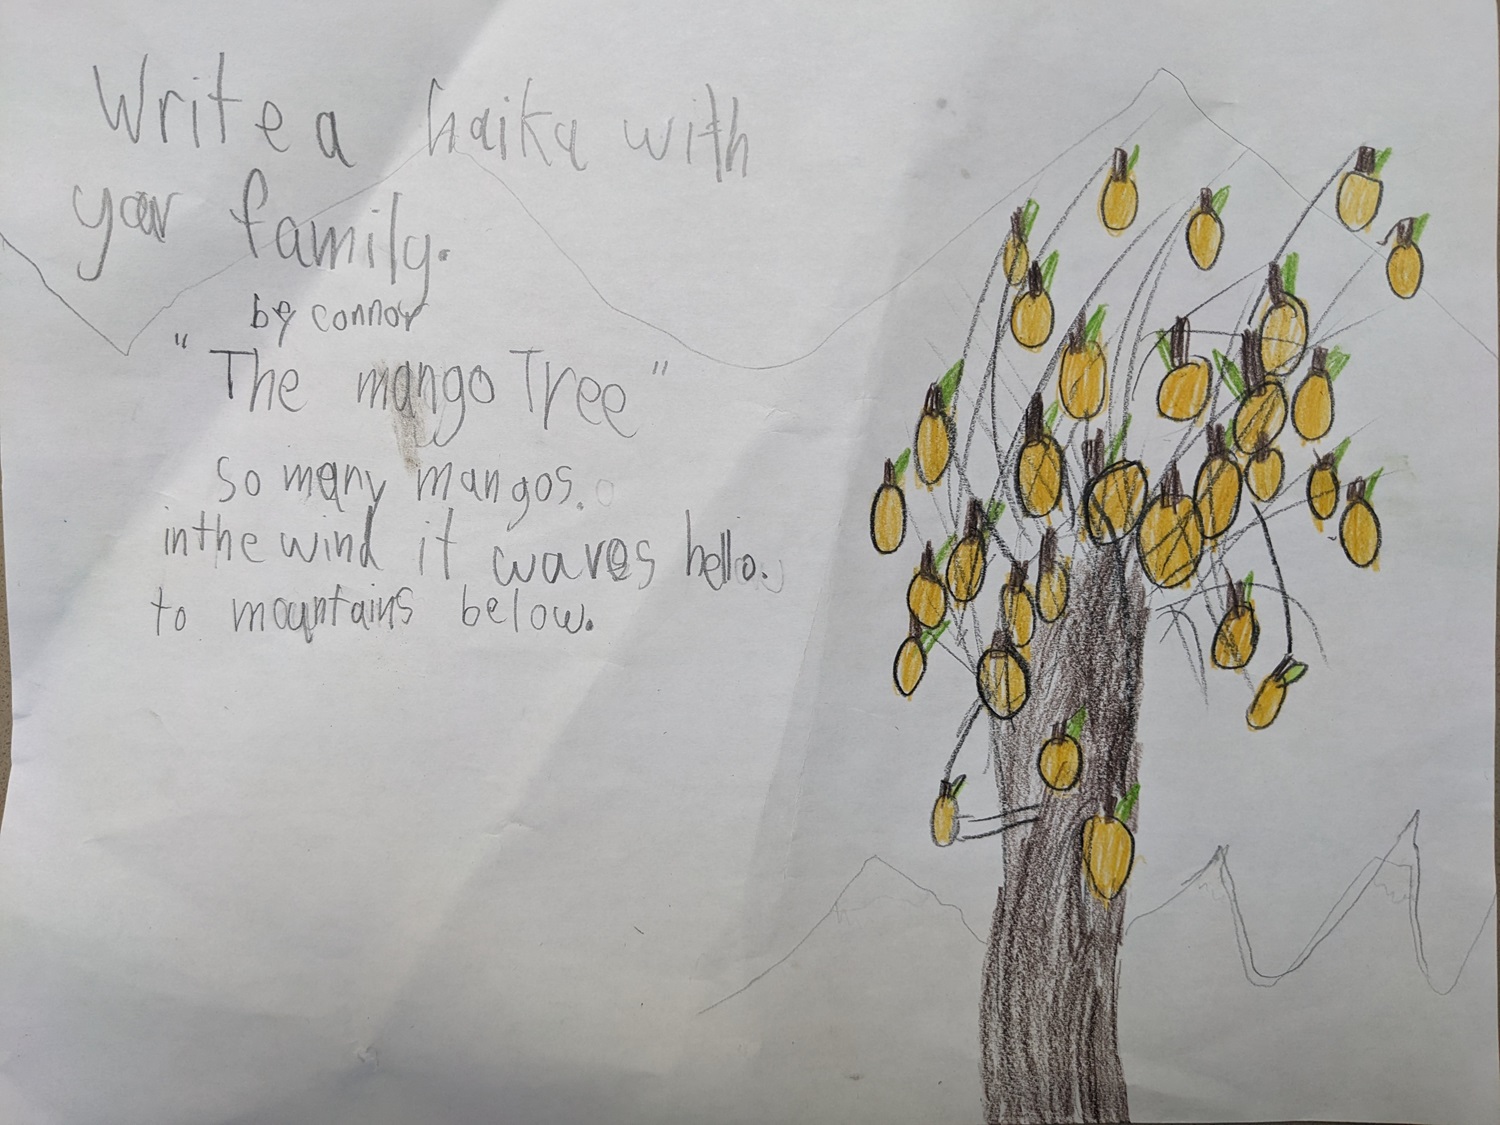 Write a haiku with
your family.
by connor
"The mango Tree"
so many mangos.
in the wind it waves hello.
to mountains below.